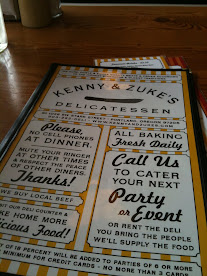 KENNY & ZUKE'S
DELICATESSEN
Please,
NO CELL PHONES
AT DINNER.
MUTE YOUR RINGER
AT OTHER TIMES
& RESPECT THE PEACE
OF OTHER DINERS.
Thanks!
WE BUY LOCAL BEEF
OUR DELI COUNTER &
TAKE HOME MORE
Delicious Food!
ALL BAKING
Fresh Daily
Call Us
TO CATER
YOUR NEXT
Party
or Event
OR RENT THE DELI
YOU BRING THE PEOPLE
WE'LL SUPPLY THE FOOD
OF 18 PERCENT WILL BE ADDED TO PARTIES OF 6 OR MORE
MINIMUM FOR CREDIT CARDS - NO MORE THAN 3 CARDS